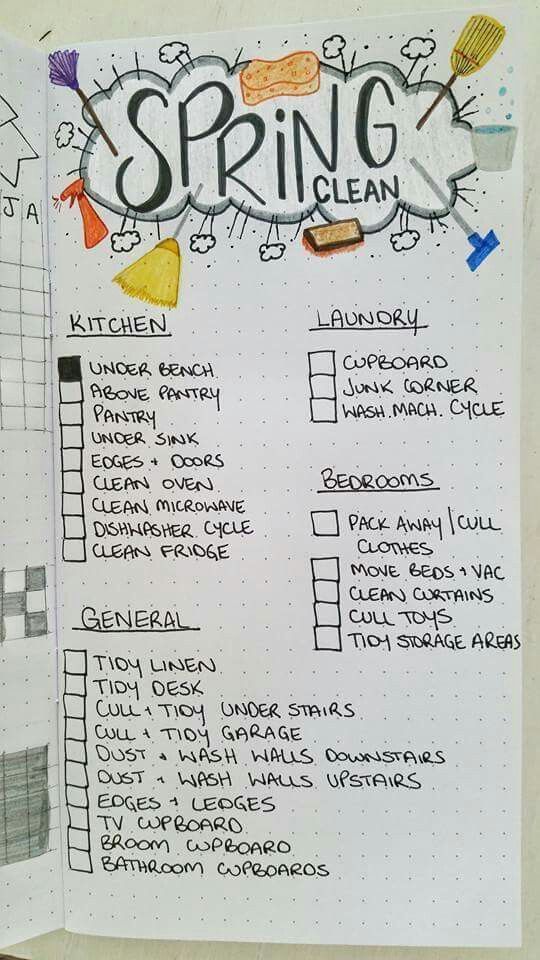 SPRING
CLEAN
J A
KITCHEN
UNDER BENCH
ABOVE PANTRY
PANTRY
UNDER SINK
EDGES + DOORS
CLEAN OVEN
CLEAN MICROWAVE
DISHWASHER CYCLE
CLEAN FRIDGE
LAUNDRY
CUPBOARD
JUNK CORNER
WASH. MACH. CYCLE
BEDROOMS
PACK AWAY / CULL
CLOTHES
MOVE BEDS + VAC
CLEAN CURTAINS
CULL TOYS
TIDY STORAGE AREAS
GENERAL
TIDY LINEN
TIDY DESK
CULL + TIDY UNDER STAIRS
CULL + TIDY GARAGE
DUST + WASH WALLS DOWNSTAIRS
DUST + WASH WALLS UPSTAIRS
EDGES + LEDGES
TV CUPBOARD
BROOM CUPBOARD
BATHROOM CUPBOARDS